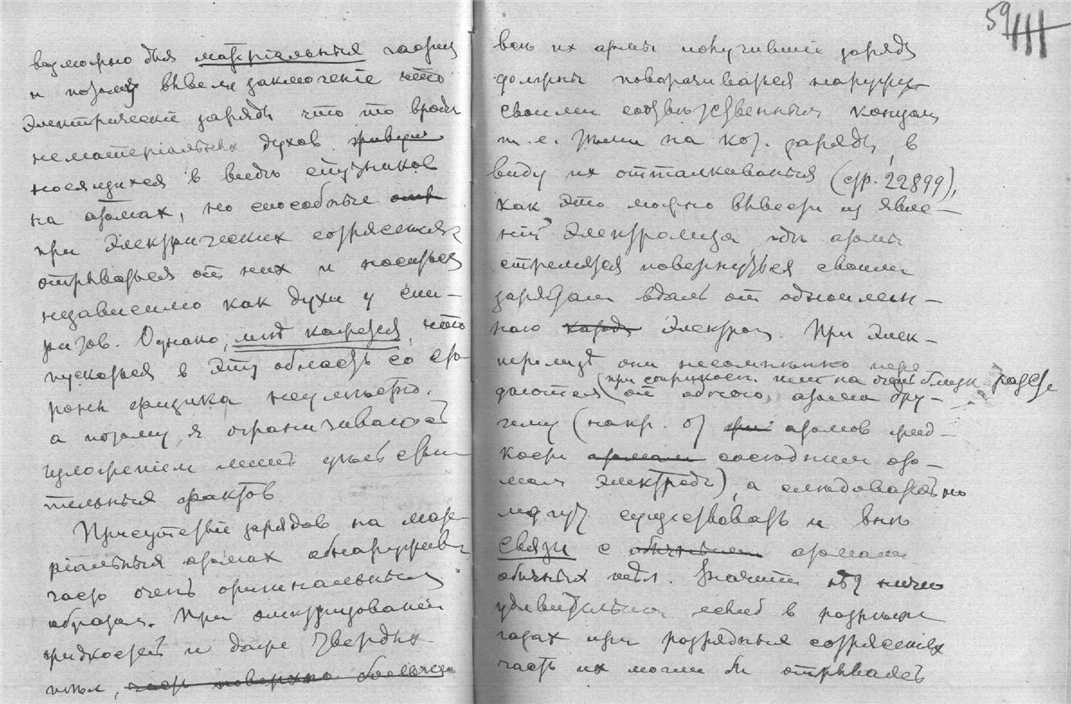 возможно для матеріальныя частиц
и поэтому вывели заключеніе что
Электрическіе заряды что то вродѣ
нематеріальных духов
носящихся в видѣ спутников
на атомах, но способные
при Электрических сотрясениях
отрываться от них и носиться
независимо как духи у спи-
ритов. Однако, мнѣ кажется, что
пускаться в эту область со сто-
роны физика неумѣстно,
а потому я ограничиваюсь
изложеніем лишь
тельныя фактов
Присутствіе зарядов на мате-
ріальныя атомах обнаружива
часто очень оригинальным
образом. При
жидкостей и даже твердых
тѣл, часть поверхно
59 III
вою их атомы получившіе заряд
должны поворачиваться наружу
своими соотвѣтственными концами
т.е. заряд, в
виду их отталкиванія (стр. 22899),
как это можно вывести из явле-
ній Электролиза гдѣ атомы
стремятся повернуться своими
зарядами вдаль от одноимен-
наго Электрод. При элек-
тролизѣ они несомнѣнно пере
(при соприкосн. или на очень близк.
даются от одного, атома дру-
гому (напр. от атомов жид-
кости сосѣдним ато-
мам Электрода), а слѣдовательно
могут существовать и внѣ
связи с обычными атомами
обычных тѣл. Значит нѣт ничего
удивительнаго еслиб в
газах при разрядныя сотрясеніях
часть их могли бы отрываться